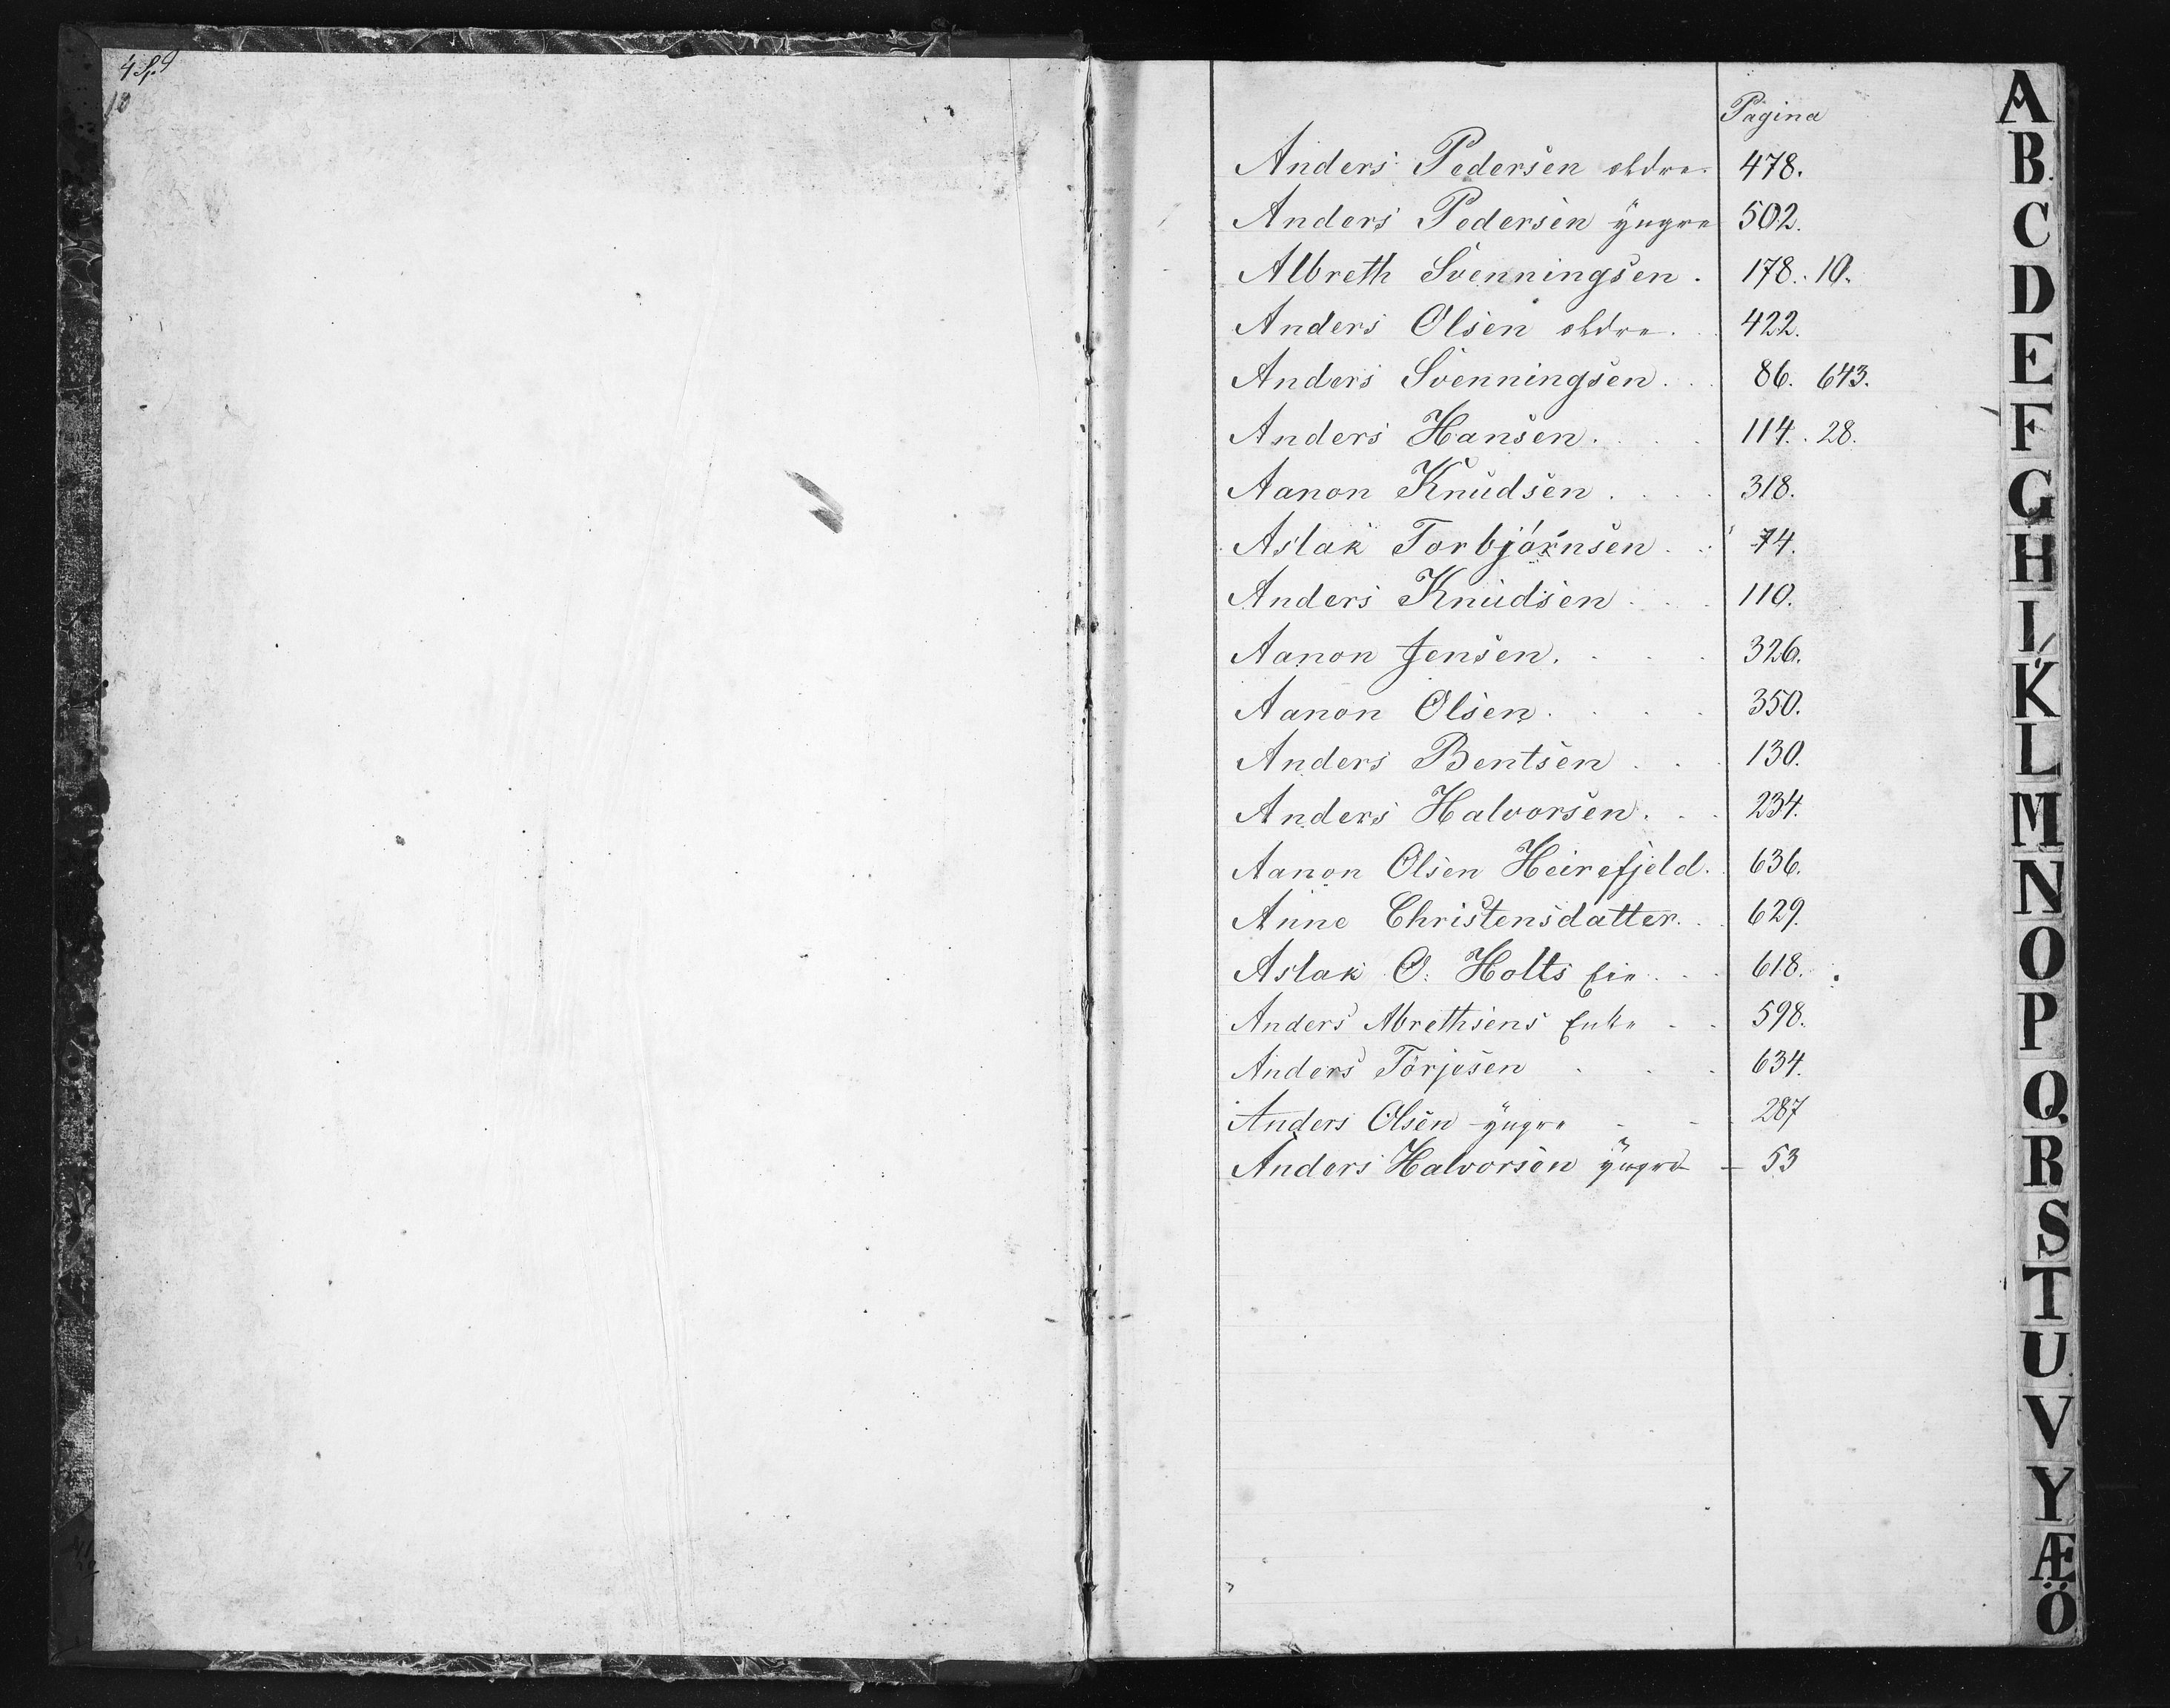 10
Pagina
Anders Pedersen ældre 478.
Anders Pedersen yngre 502.
Albreth Svenningsen. 178. 10.
Anders Olsen ældre. 422.
Anders Svenningsen. 86. 643.
Anders Hansen. 114. 28.
Aanon Knudsen. 318.
Aslak Torbjørnsen. 74.
Anders Knudsen 110.
Aanon Jensen. 326.
Aanon Olsen. 350.
Anders Bentsen 130.
Anders Halvorsen. 234.
Aanon Olsen Heirefjeld. 636.
Anne Christensdatter. 629.
Aslak O. Holts Eie 618.
Anders Abrethsens Enke 598.
Anders Torjesen 634.
Anders Olsen yngre 287
Anders Halvorsen yngre 53
A
B.
C
D
E
F
G
H
I
K
L
M
N
O
P
Q
R
S
T
U
V
Y
Æ
Ö